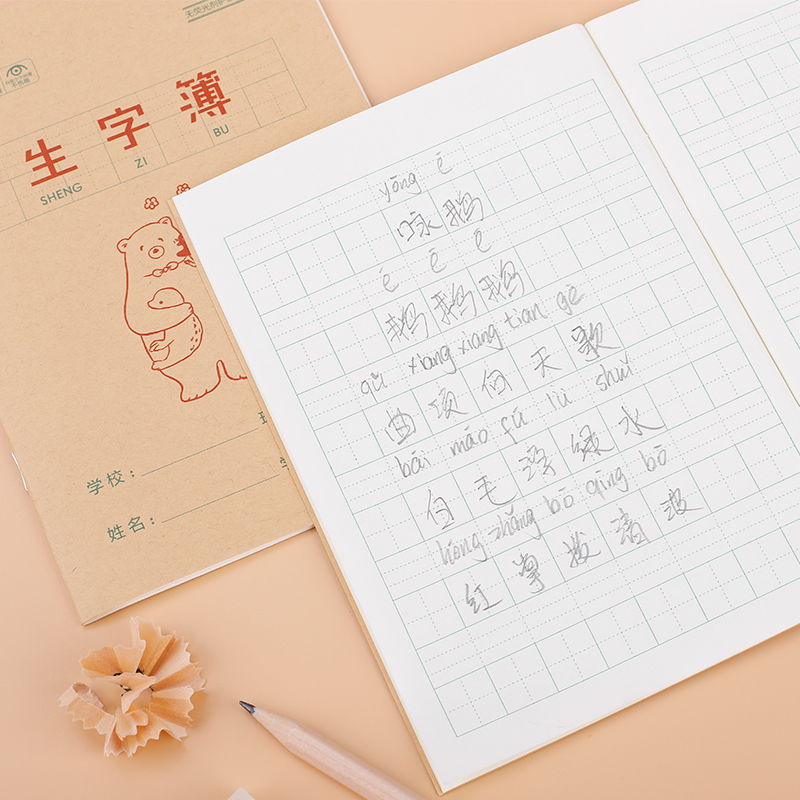 无荧光剂护
生字簿
SHENG ZI BU
学校：
姓名：
yōng é
咏鹅
é é é
鹅鹅鹅
qū xiang xiang tian gē
曲项向天歌
bái máo fú lǜ shuǐ
白毛浮绿水
hóng zhǎng bō qīng bō
红掌拨清波